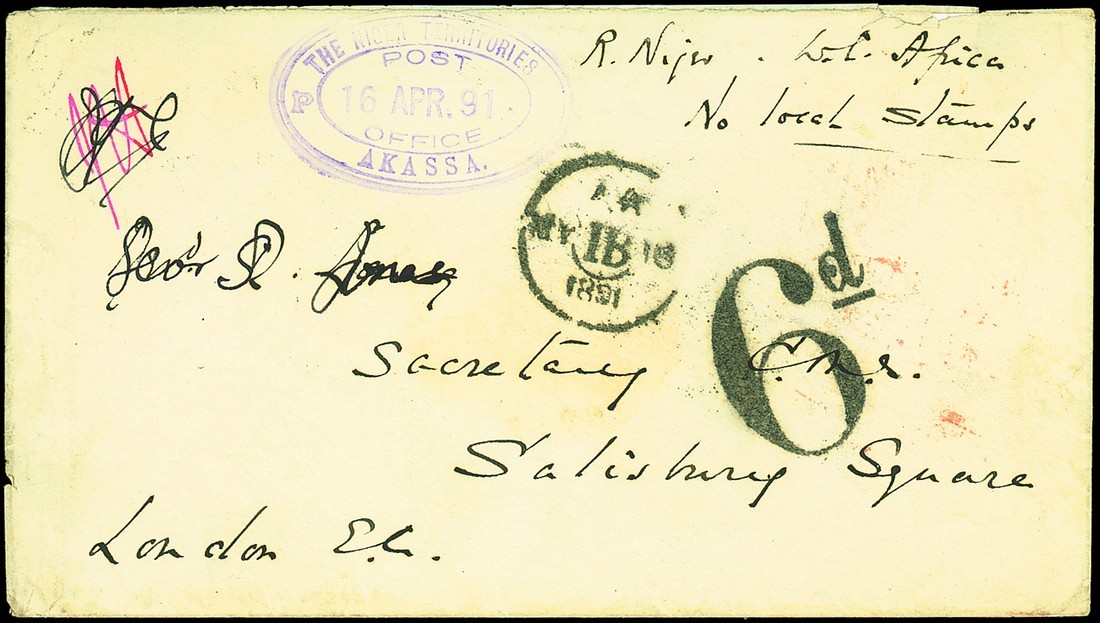 THE NIGER TERRITORIES
POST
16 APR. 91
OFFICE
AKASSA.
R. Niger . W.C. Africa
No local Stamps
MY 18
1891
6d
Secretary C.M.S.
Salisbury Square
London E.C.